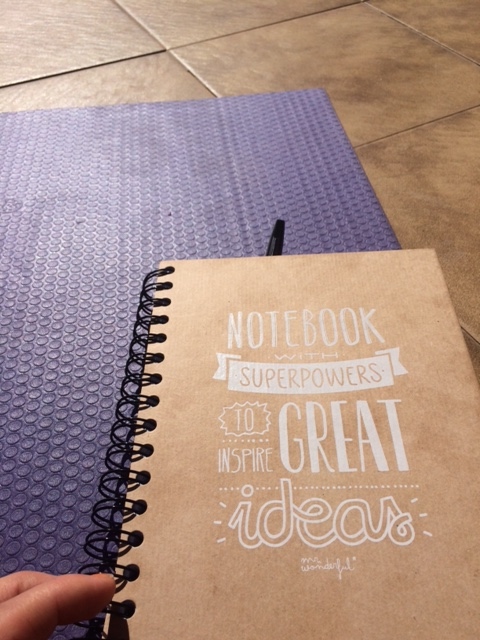 NOTEBOOK
WITH
SUPERPOWERS
TO
INSPIRE GREAT
ideas
mr.
wonderful*